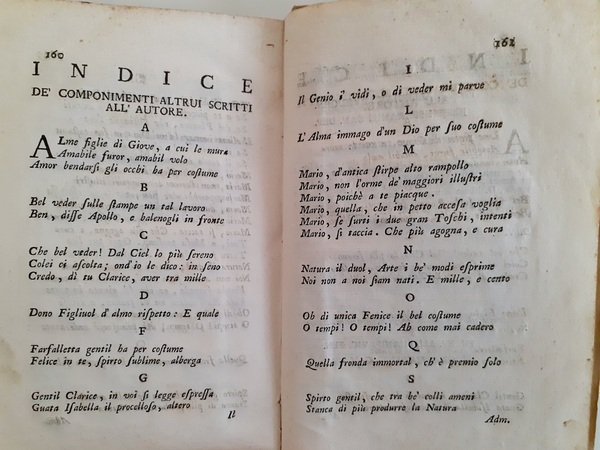 160
INDICE
DE' COMPONIMENTI ALTRUI SCRITTI
ALL' AUTORE.
A
ALme figlie di Giove, a cui le mura
Amabile furor, amabil volo
Amor bendarsi gli occhi ha per costume
B
Bel veder sulle stampe un tal lavoro
Ben, disse Apollo, e balenogli in fronte
C
Che bel veder! Dal Ciel lo più sereno
Colei ci ascolta; ond'io le dico: in seno
Credo, di tu Clarice, aver tra mille
D
Dono Figliuol d'almo rispetto: E quale
F
Farfalletta gentil ha per costume
Felice in te, spirto sublime, alberga
G
Gentil Clarice, in voi si legge espressa
Guata Isabella il procelloso, altero
Il
161
I
Il Genio i' vidi, o di veder mi parve
L
L'Alma immago d'un Dio per suo costume
M
Mario, d'antica stirpe alto rampollo
Mario, non l'orme de' maggiori illustri
Mario, poichè a te piacque.
Mario, quella, che in petto accesa voglia
Mario, se surti i due gran Toschi, intenti
Mario, si taccia. Che più agogna, e cura
N
Natura il duol, Arte i be' modi esprime
Noi non a noi siam nati. E mille, e cento
O
Oh di unica Fenice il bel costume
O tempi! O tempi! Ah come mai cadero
Q
Quella fronda immortal, ch'è premio solo
S
Spirto gentil, che tra be' colli ameni
Stanca di più produrre la Natura
Adm.